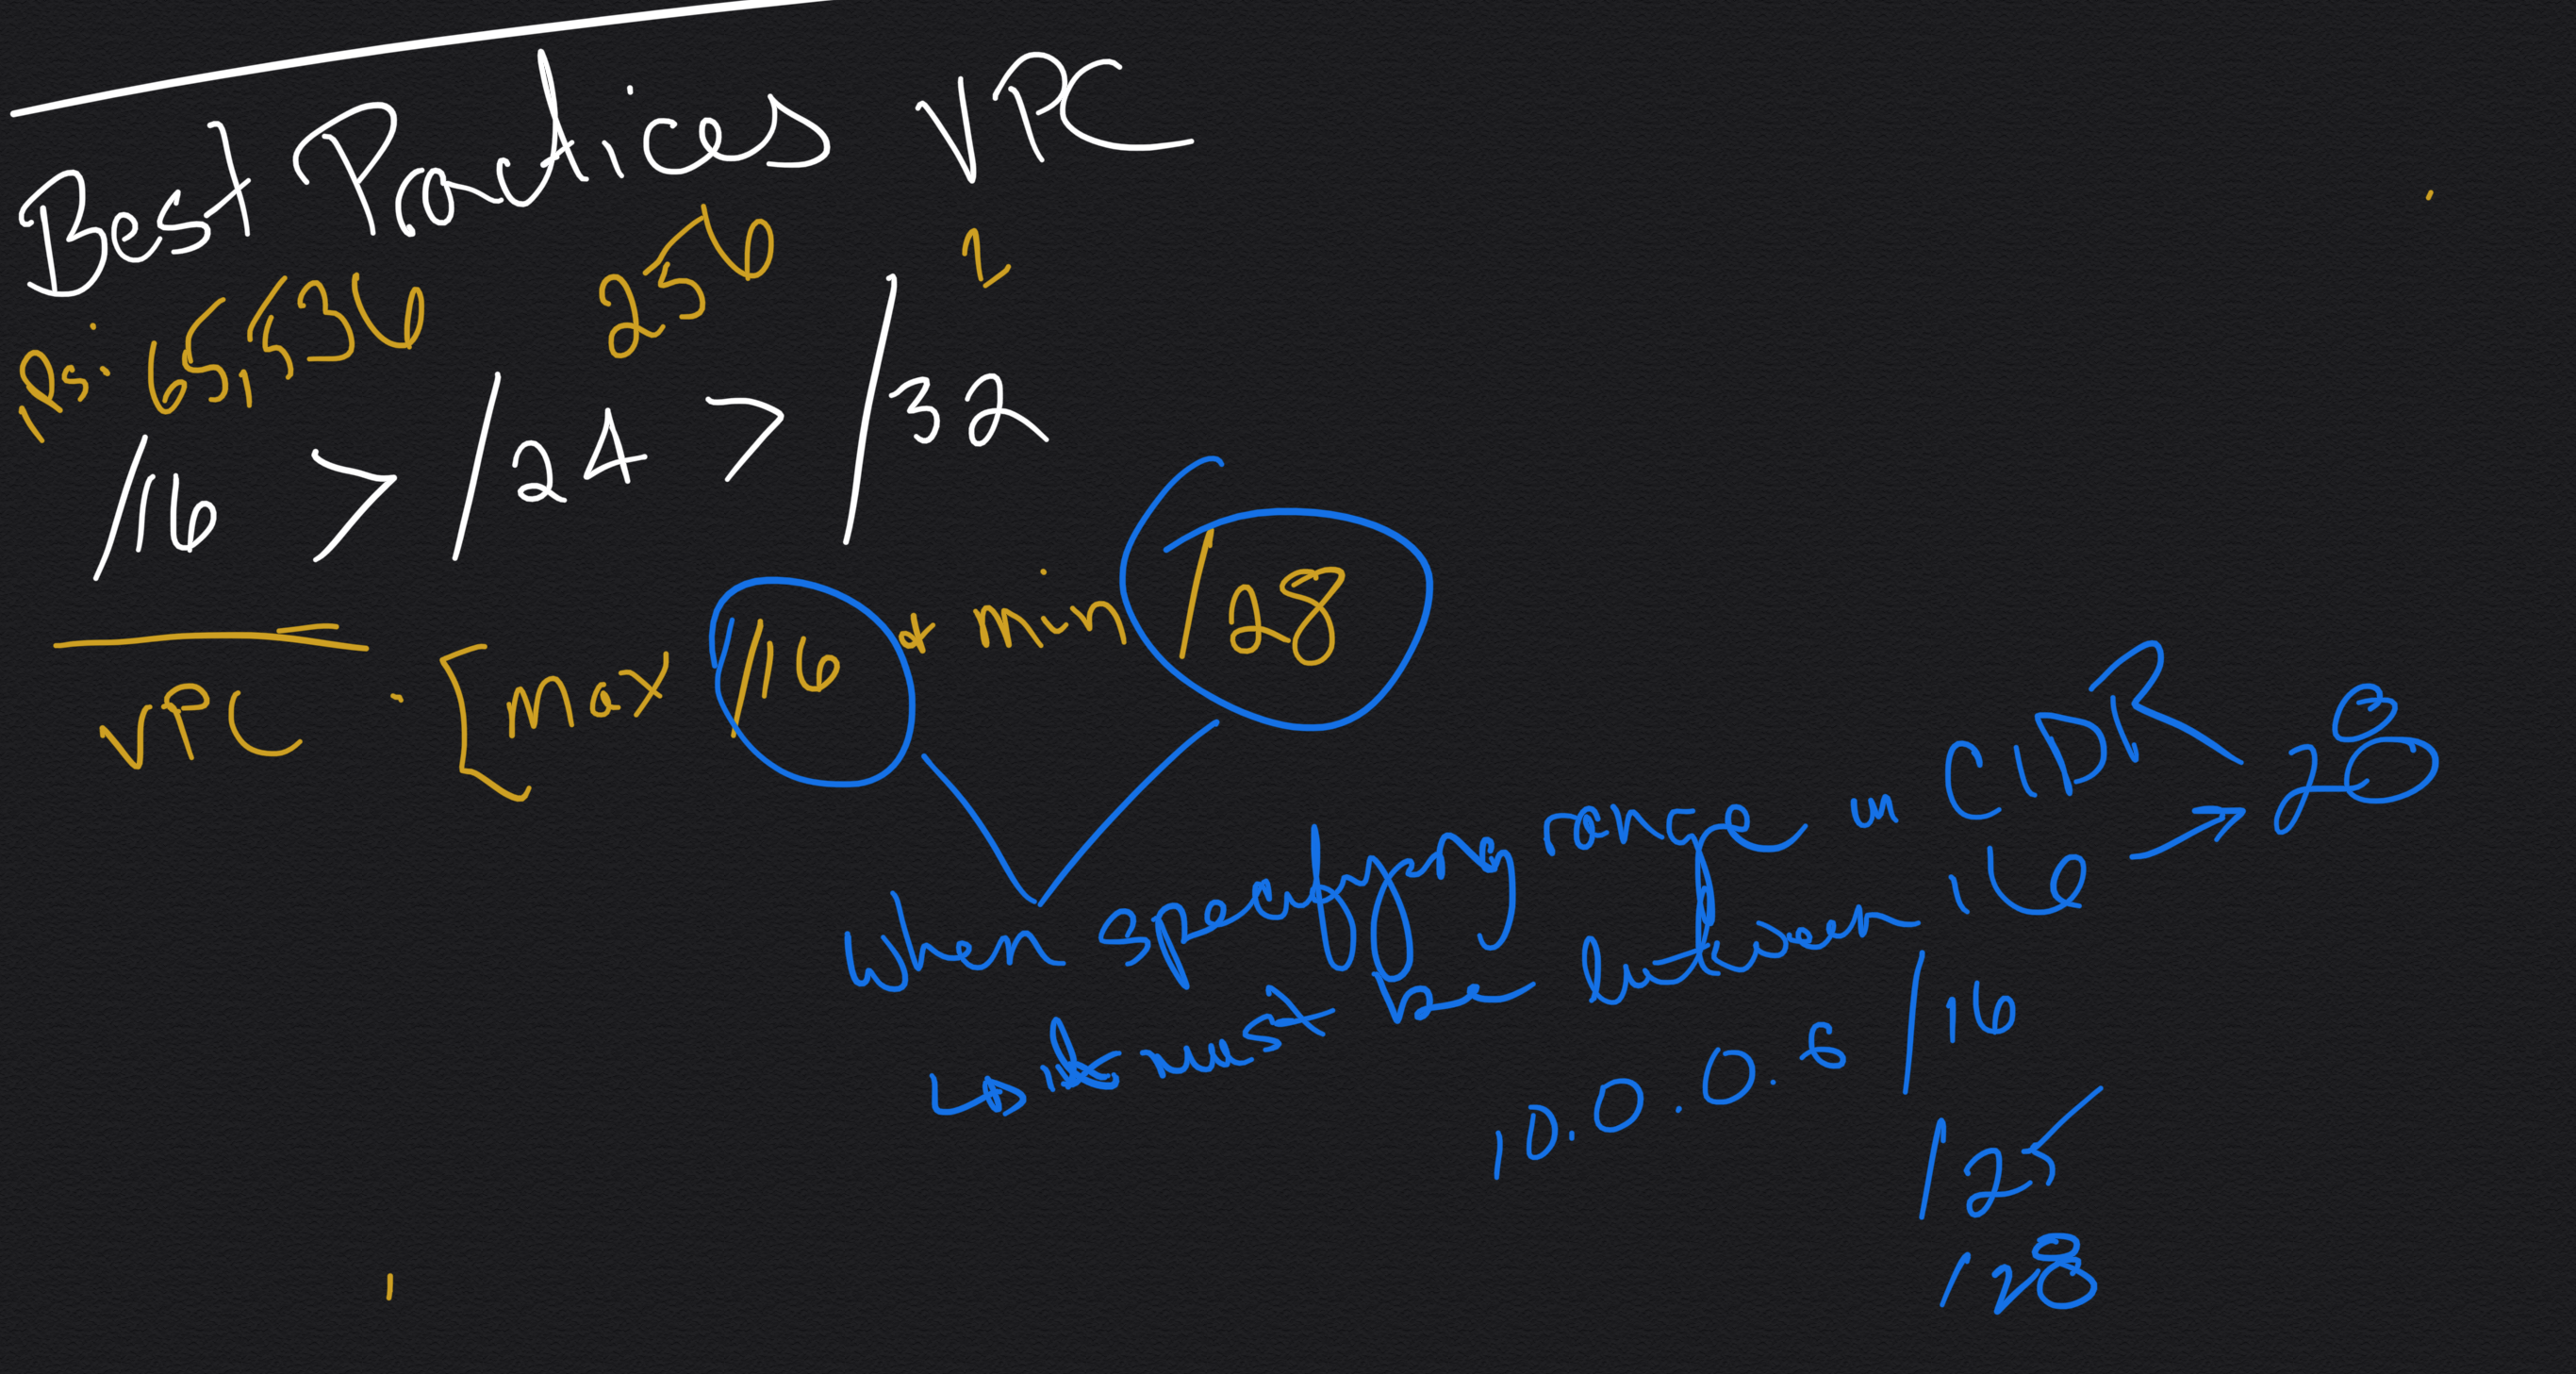 Best Practices VPC
IPs: 65,536 256 1
/16 > /24 > /32
VPC · [max /16 & min /28
When specifying range in CIDR
↳ it must be between 16 → 28
10.0.0.6 /16
/25
/28